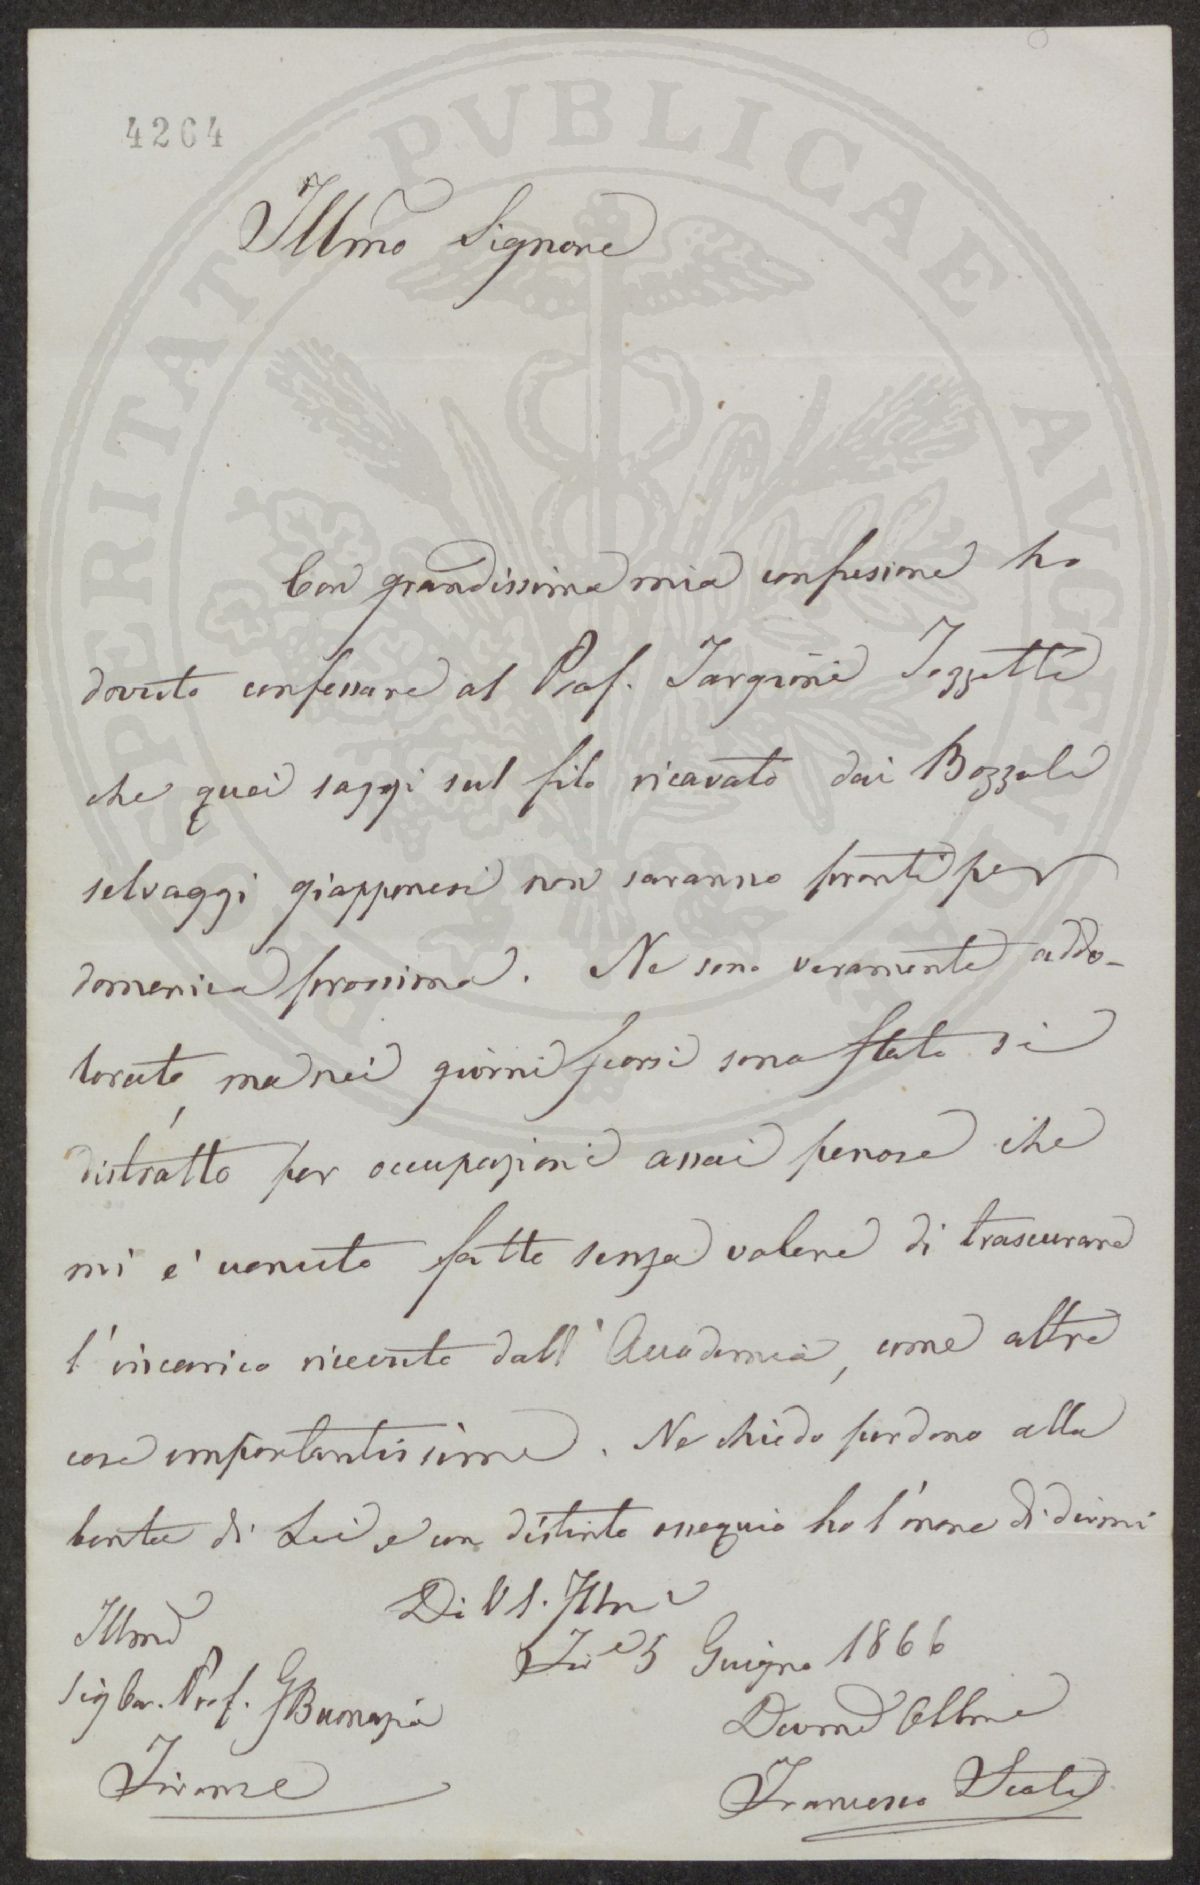 4264
Illmo Signore
Con grandissima mia confusione ho
dovuto confessare al Prof. Targioni Tozzetti
che quei saggi sul filo ricavato dai Bozzoli
selvaggi giapponesi non saranno pronti per
domenica prossima. Ne sono veramente addo-
lorato, ma nei giorni scorsi sono stato sì
distratto per occupazioni assai penose che
mi è venuto fatto senza volere di trascurare
l'incarico ricevuto dall'Accademia, come altre
cose importantissime. Ne chiedo perdono alla
bontà di Lei e con distinto ossequio ho l'onore di dirmi
Di V S. Illma
Illmo
Sig Cav. Prof. G Buonazia
Firenze
5 Giugno 1866
Devmo Obbmo
Francesco
PROSPERITATI PVBLICAE AVGENDAE